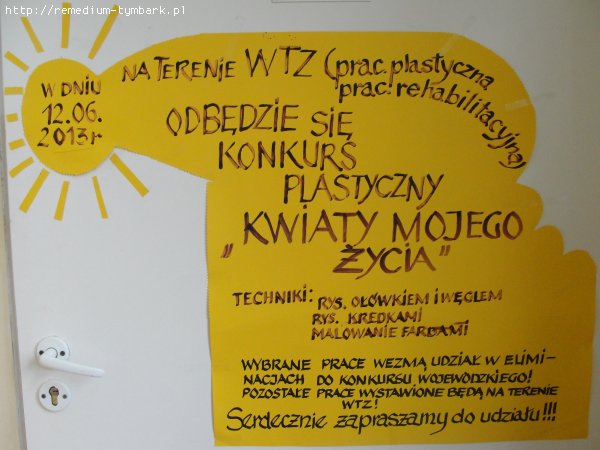 http://remedium-tymbark.pl
W DNIU
12.06.
2013r
NA TERENIE WTZ (prac. plastyczna
prac. rehabilitacyjna)
ODBĘDZIE SIĘ
KONKURS
PLASTYCZNY
„KWIATY MOJEGO
ŻYCIA"
TECHNIKI: RYS. OŁÓWKIEM I WĘGLEM
RYS. KREDKAMI
MALOWANIE FARBAMI
WYBRANE PRACE WEZMĄ UDZIAŁ W ELIMI-
NACJACH DO KONKURSU WOJEWÓDZKIEGO!
POZOSTAŁE PRACE WYSTAWIONE BĘDĄ NA TERENIE
WTZ!
Serdecznie zapraszamy do udziału!!!